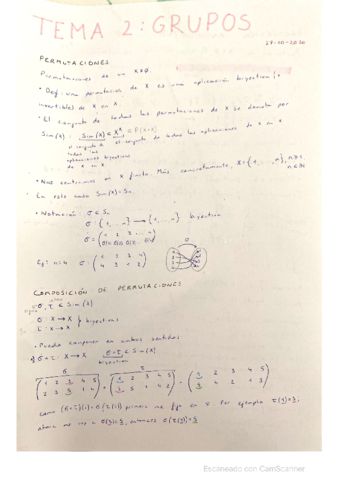 TEMA 2: GRUPOS
27-10-2020
PERMUTACIONES
Permutaciones de un X≠∅.
• Def: una permutación de X es una aplicación biyectiva (=
invertible) de X en X.
• El conjunto de todas las permutaciones de X se denota por
Sim(X): Sim(X) ⊆ X^X = F(X,X)
el conjunto de todas las aplicaciones de X en X
el conjunto de
todas las
aplicaciones biyectivas
de X en X
• Nos centramos en X finito. Más concretamente, X={1,...,n}, n≥1, n∈ℕ
En este caso Sim(X)=Sn.
• Notación: σ ∈ Sn
σ: {1,...,n} → {1,...,n} biyectiva
σ = (1 2 3 ... n
σ(1) σ(2) σ(3) ... σ(n))
Ej: n=4 σ: (1 2 3 4
4 3 1 2)
σ
COMPOSICIÓN DE PERMUTACIONES
σ, τ ∈ Sim(X)
σ: X→X
τ: X→X } biyectivas
• Puedo componer en ambos sentidos
σ∘τ: X→X σ∘τ ∈ Sim(X)
biyectiva
σ τ
Como (σ∘τ)(i)=σ(τ(i)) primero me fijo en τ. Por ejemplo